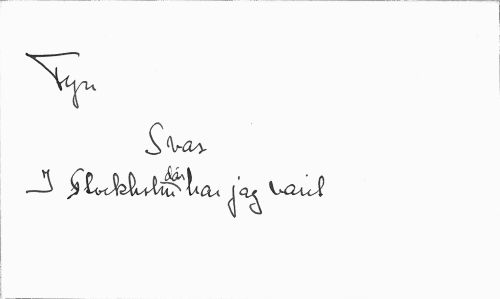 Fyr
Svar
I Stockholm där har jag varit